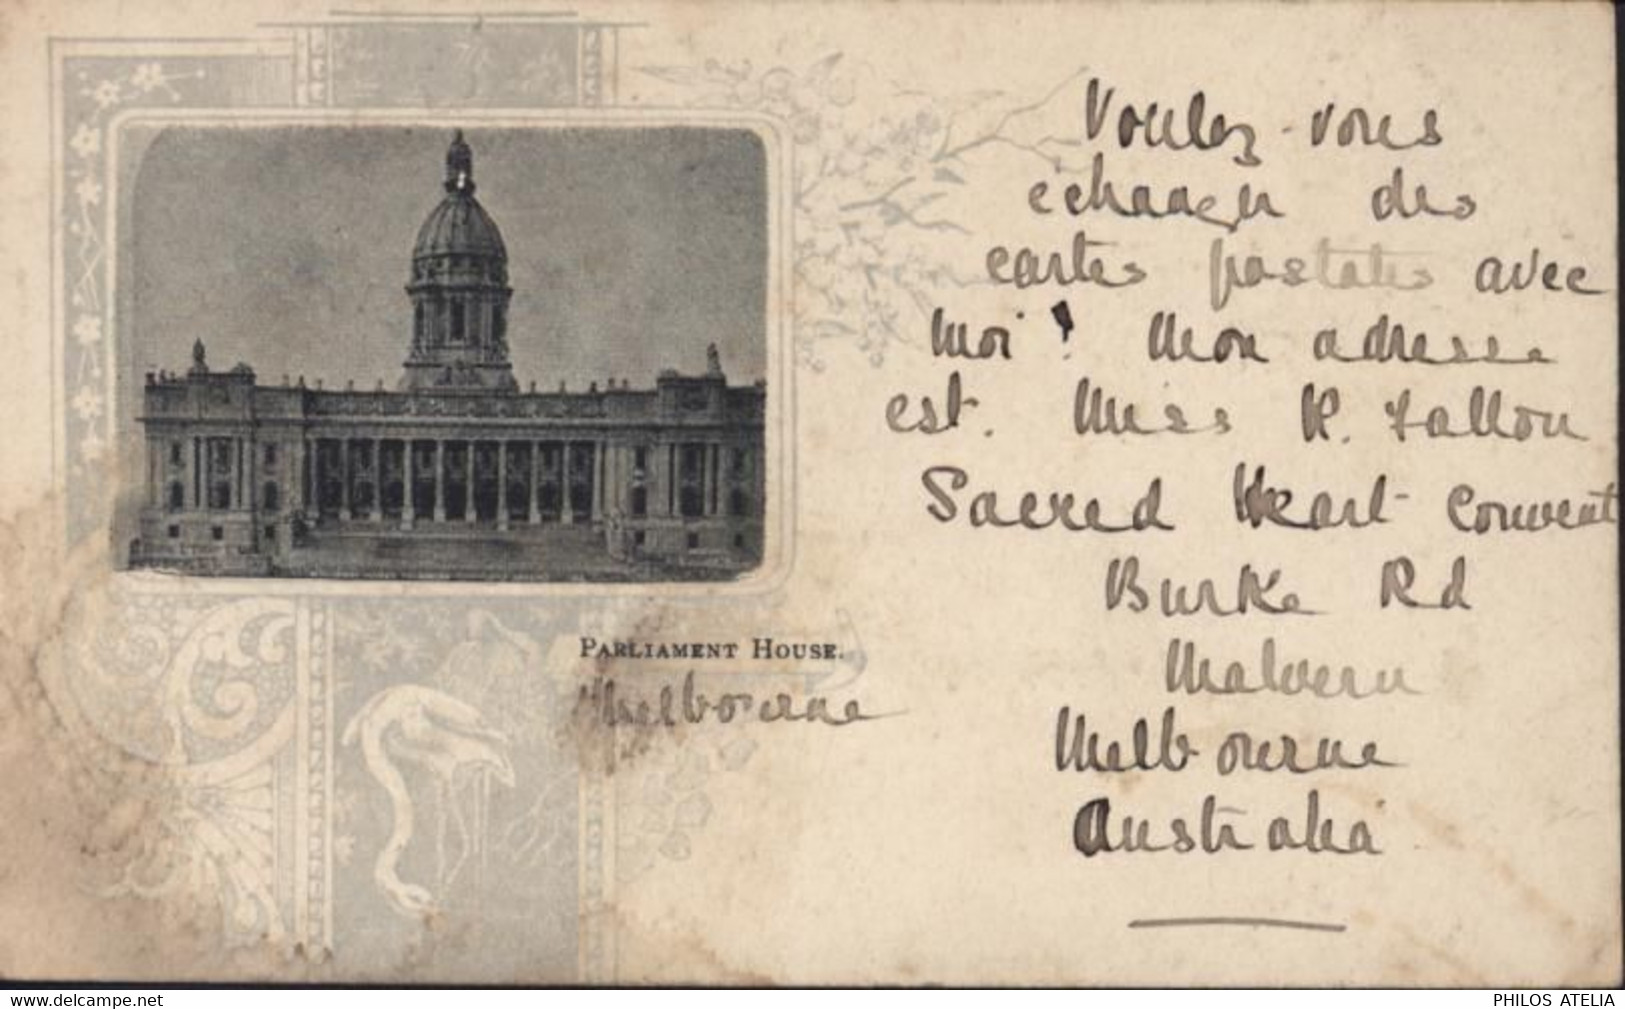 Voulez-vous
echanger des
cartes postales avec
moi! Mon adresse
est. Miss R. Fallon
Sacred Heart Convent
Burke Rd
Malvern
Melbourne
Australia
PARLIAMENT HOUSE.
Melbourne
www.delcampe.net
PHILOS ATELIA